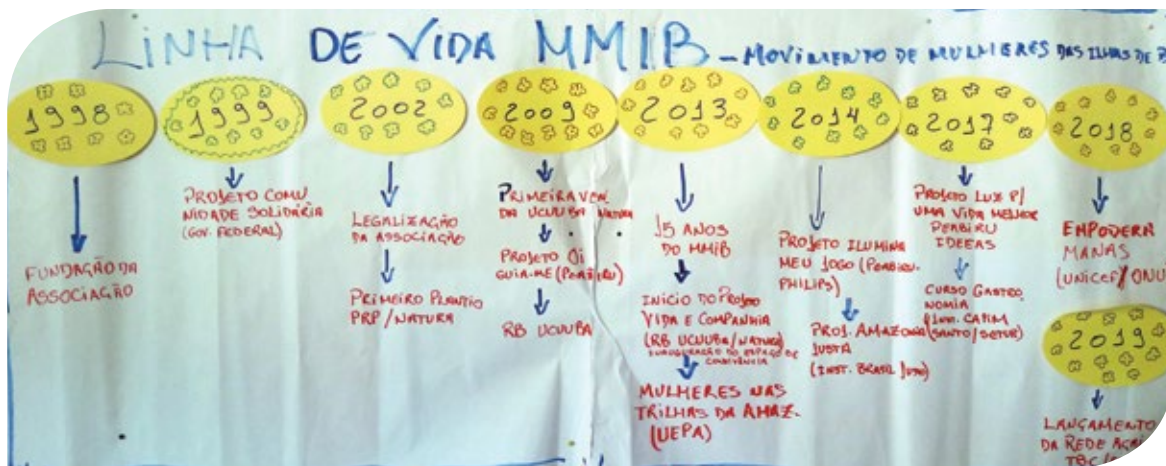 LINHA DE VIDA MMIB - MOVIMENTO DE MULHERES DAS ILHAS DE B
1998
FUNDAÇÃO DA
ASSOCIAÇÃO
1999
PROJETO COMU
NIDADE SOLIDÁRIA
(GOV. FEDERAL)
2002
LEGALIZAÇÃO
DA ASSOCIAÇÃO
PRIMEIRO PLANTIO
PRP/NATURA
2009
PRIMEIRA VEN
DA UCUUBA NATURA
PROJETO OI
GUIA-ME (PEABIRU)
RB UCUUBA
2013
15 ANOS
DO MMIB
INÍCIO DO PROJETO
VIDA E COMPANHIA
(RB UCUUBA/NATURA)
INAUGURAÇÃO DO ESPAÇO DE
CONVIVÊNCIA
MULHERES NAS
TRILHAS DA AMAZ.
(UEPA)
2014
PROJETO ILUMINA
MEU JOGO (PEABIRU-
PHILIPS)
PROJ. AMAZONIA
JUSTA
(INST. BRASIL JUSTO)
2017
PROJETO LUZ P/
UMA VIDA MELHOR
PEABIRU
IDEEAS
CURSO GASTRO
NOMIA
CAPIM
SANTO/SETUR)
2018
EMPODERA
MANAS
(UNICEF/ONU
2019
LANÇAMENTO
DA REDE
TBC